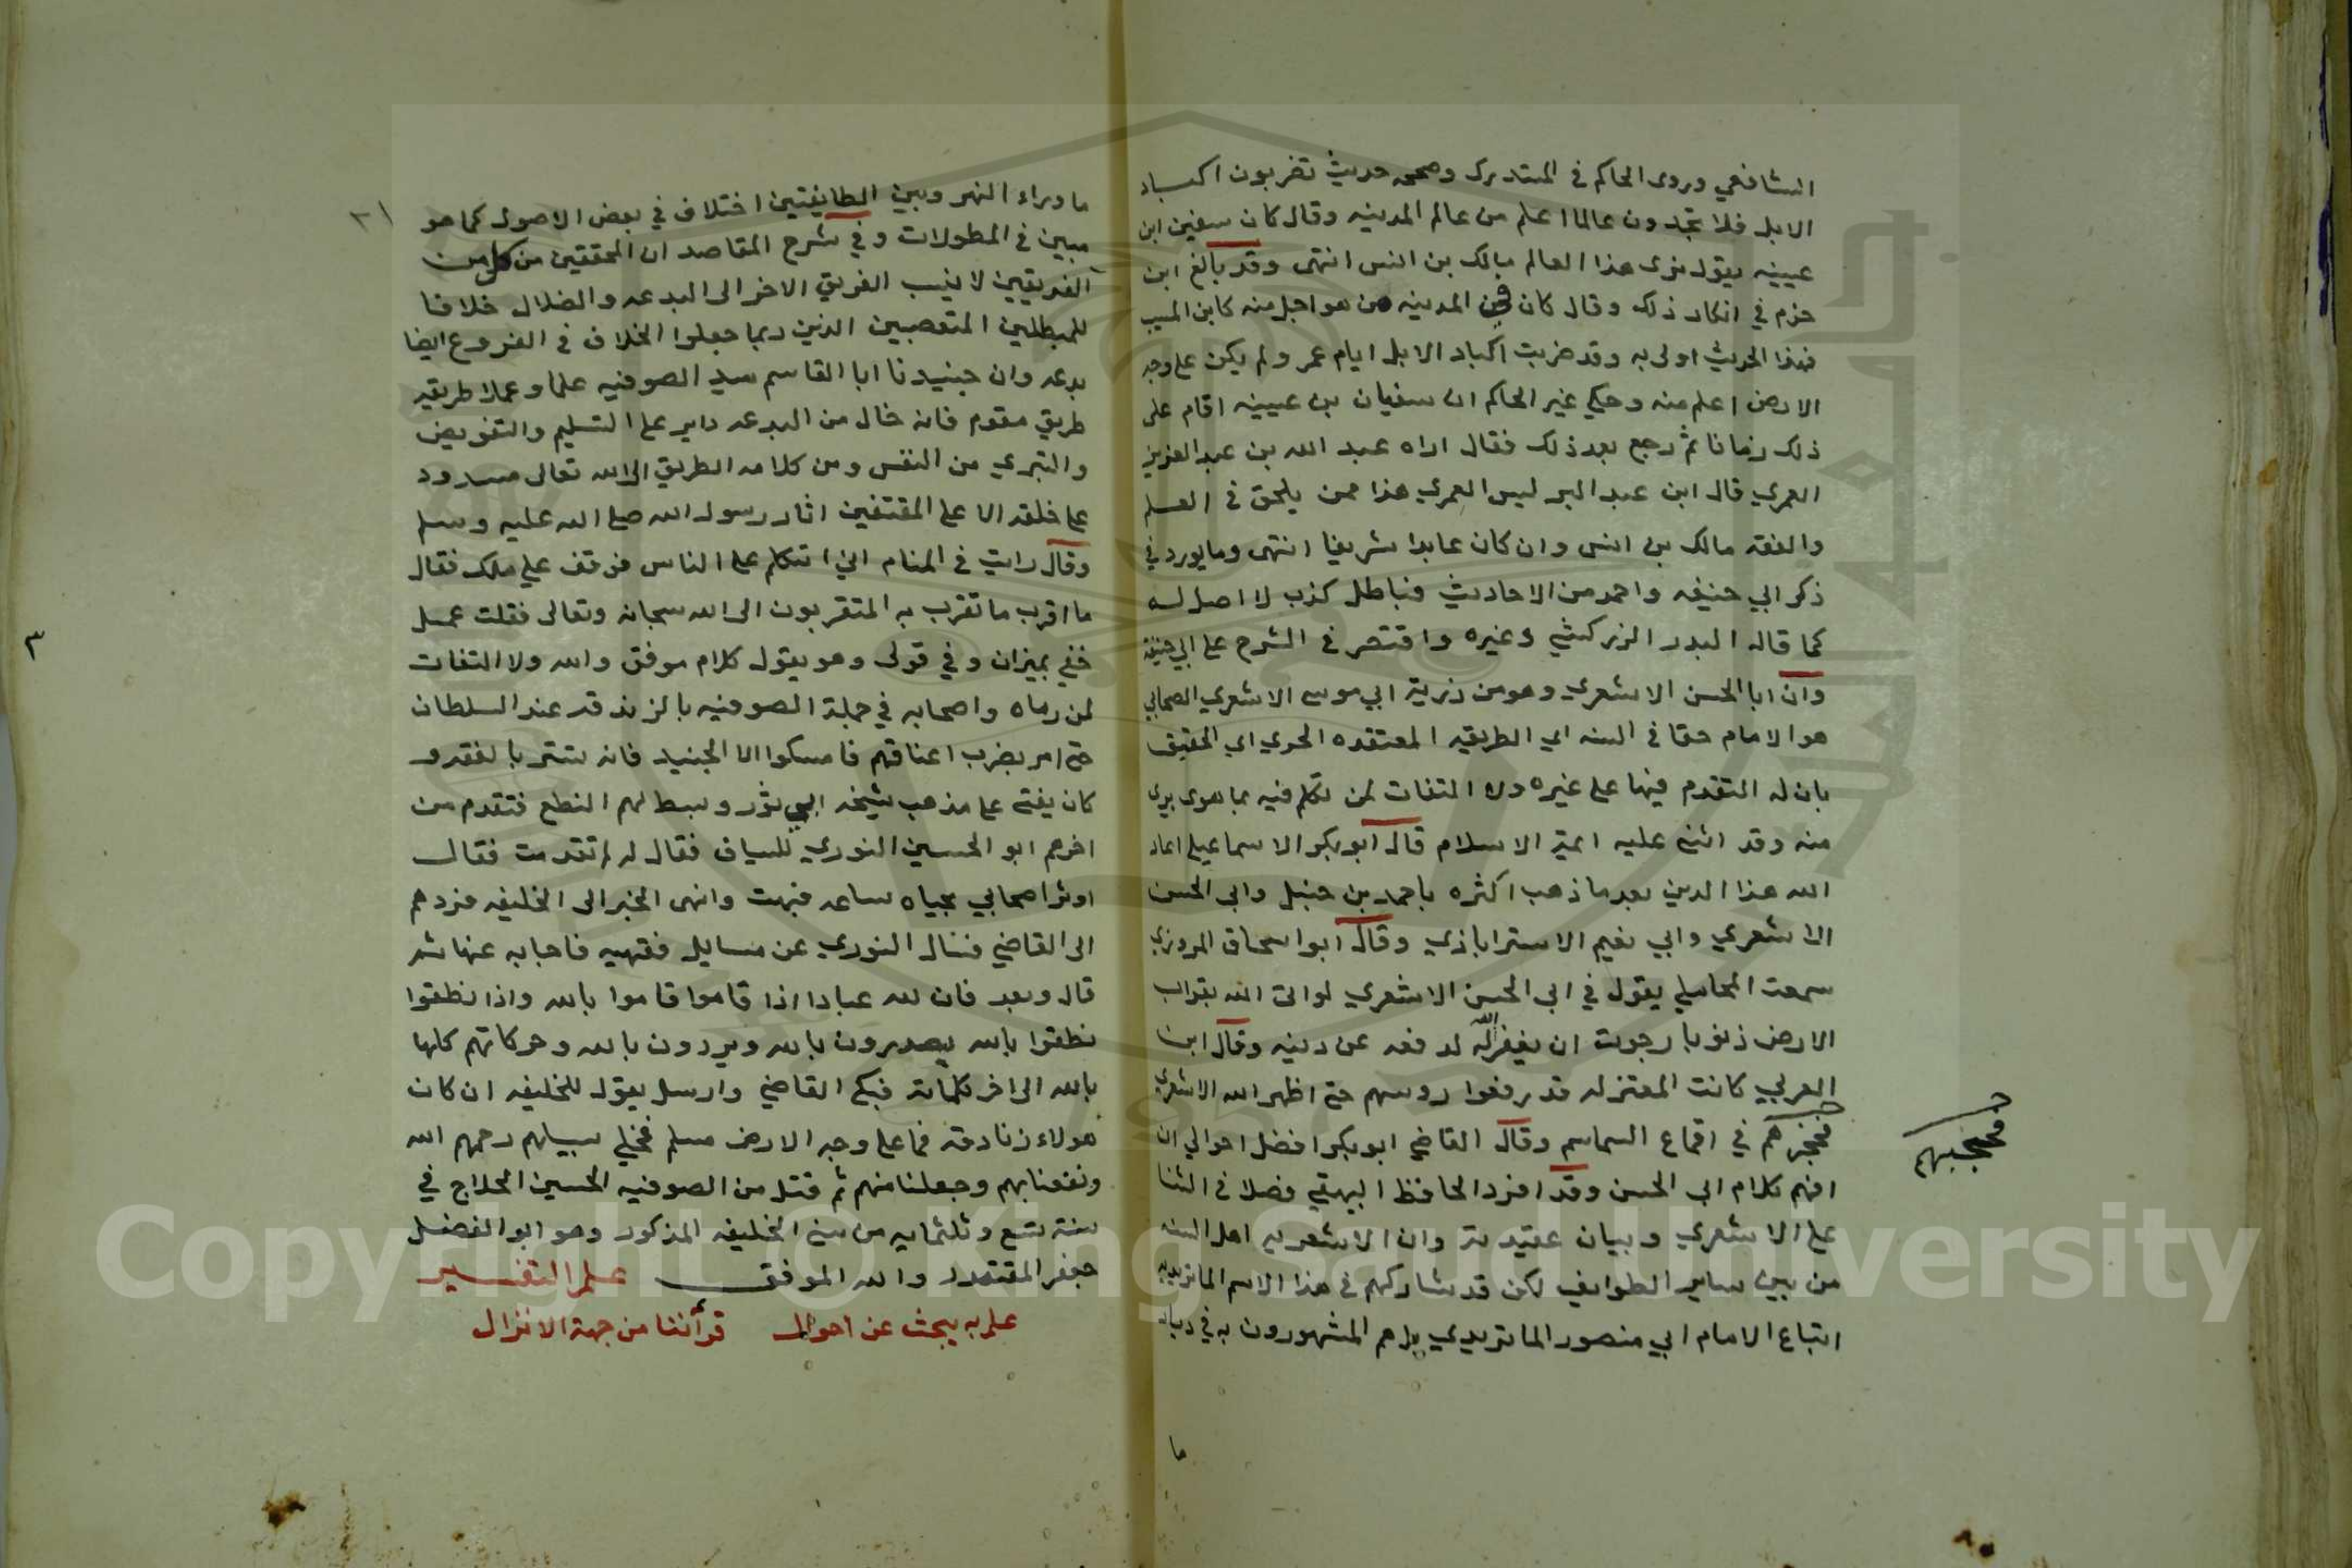 الشافعي وروى الحاكم في المستدرك وصححه حديث تضربون اكباد
الابل فلا تجدون عالما اعلم من عالم المدينه وقال كان سفين ابن
عيينه يقول نرى هذا العالم مالك بن انس انتهى وقد بالغ ابن
حزم في انكار ذلك وقال كان في المدينه من هو اجل منه كابن المسيب
فهذا الحديث اولى به وقد ضربت اكباد الابل ايام عمر ولم يكن على وجه
الارض اعلم منه وحكي غير الحاكم ان سفيان بن عيينه اقام على
ذلك زمانا ثم رجع بعد ذلك فقال اراه عبد الله بن عبد العزيز
العمري قال ابن عبد البر ليس العمري هذا ممن يلحق في العلم
والفقه مالك بن انس وان كان عابدا شريفا انتهى وما يورد في
ذكر ابي حنيفه واحمد من الاحاديث فباطل كذب لا اصل له
كما قاله البدر الزركشي وغيره واقتصر في الشرح على ابي حنيفة
وان ابا الحسن الاشعري وهو من ذرية ابي موسى الاشعري الصحابي
هو الامام حقا في السنه اي الطريقه المعتقده الحري اي الحقيق
بان له التقدم فيها على غيره ولا التفات لمن تكلم فيه بما هو بري
منه وقد اثنى عليه ايمة الاسلام قال ابو بكر الاسماعيلي اعاد
الله هذا الدين بعد ما ذهب اكثره باحمد بن حنبل وابي الحسن
الاشعري وابي نعيم الاستراباذي وقال ابو اسحاق المروزي
سمعت المحاملي يقول في ابي الحسن الاشعري لو اتى الله بقراب
الارض ذنوبا رجوت ان يغفر الله له لدفعه عن دينه وقال ابن
العربي كانت المعتزله قد رفعوا روسهم حتى اظهر الله الاشعري
فحجزهم في اقماع السماسم وقال القاضي ابو بكر افضل احوالي ان
فحجبهم
افهم كلام ابي الحسن وقد افرد الحافظ البيهقي فصلا في الثنا
على الاشعري وبيان عقيدته وان الاشعريه اهل السنه
من بين ساير الطوايف لكن قد شاركهم في هذا الاسم الماتريديه
اتباع الامام ابي منصور الماتريدي بل هم المشهورون به في ديار
ما
ما وراء النهر وبين الطايفتين اختلاف في بعض الاصول كما هو
مبين في المطولات وفي شرح المقاصد ان المحققين من كل من
الفريقين لا ينسب الفريق الاخر الى البدعه والضلال خلافا
للمبطلين المتعصبين الذين ربما جعلوا الخلاف في الفروع ايضا
بدعه وان جنيدنا ابا القاسم سيد الصوفيه علما وعملا طريقه
طريق مقوم فانه خال من البدعه داير على التسليم والتفويض
والتبري من النفس ومن كلامه الطريق الى الله تعالى مسدود
على خلقه الا على المقتفين اثار رسول الله صلى الله عليه وسلم
وقال رايت في المنام اني اتكلم على الناس فوقف علي ملك فقال
ما اقرب ما تقرب به المتقربون الى الله سبحانه وتعالى فقلت عمل
خفي بميزان وفي فولى وهو يقول كلام موفق والله ولا التفات
لمن رماه واصحابه في جملة الصوفيه بالزندقه عند السلطان
حتى امر بضرب اعناقهم فامسكوا الا الجنيد فانه تستر بالفقه و
كان يفتي على مذهب شيخه ابي ثور وبسط لهم النطع فتقدم من
اخرهم ابو الحسين النوري للسياف فقال له لم تقدمت فقال
اوثر اصحابي بحياه ساعه فبهت وانهى الخبر الى الخليفه فردهم
الى القاضي فسال النوري عن مسايل فقهيه فاجابه عنها ثم
قال وبعد فان لله عبادا اذا قاموا قاموا بالله واذا نطقوا
نطقوا بالله يصدرون بالله ويردون بالله وحركاتهم كلها
بالله الى اخر كلماته فبكى القاضي وارسل يقول للخليفه ان كان
هولاء زنادقه فما على وجه الارض مسلم فخلى سبيلهم رحمهم الله
ونفعنا بهم وجعلنا منهم ثم قتل من الصوفيه الحسين الحلاج في
سنة تسع وثلثمايه من سني الخليفه المذكور وهو ابو الفضل
جعفر المقتدر والله الموفق علم التفسير
علم به يبحث عن احوال قرأننا من جهة الانزال
٣
Copyright © King Saud University